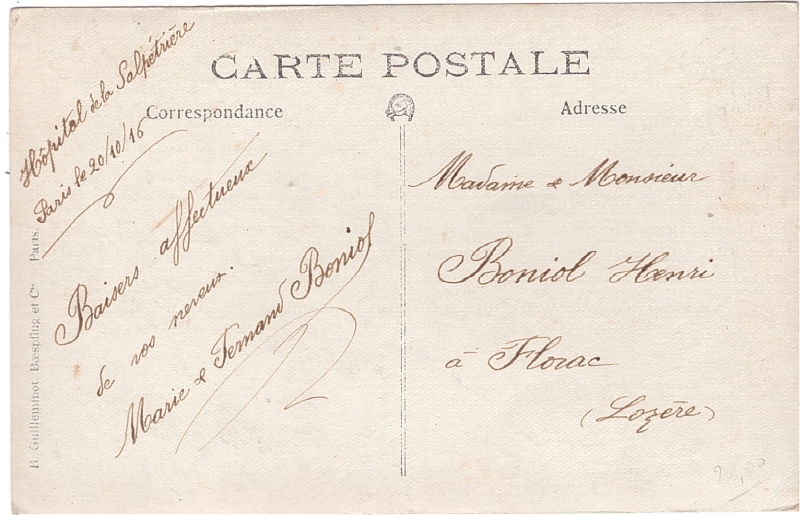 CARTE POSTALE
Correspondance
Adresse
Hôpital de la Salpétrière
Paris le 20/10/16
Baisers affectueux
de vos neveux.
Marie & Fernand Boniol
Madame & Monsieur
Boniol Henri
à Florac
(Lozère)
R. Guilleminot, Bœspflug et Cie Paris.
20,00